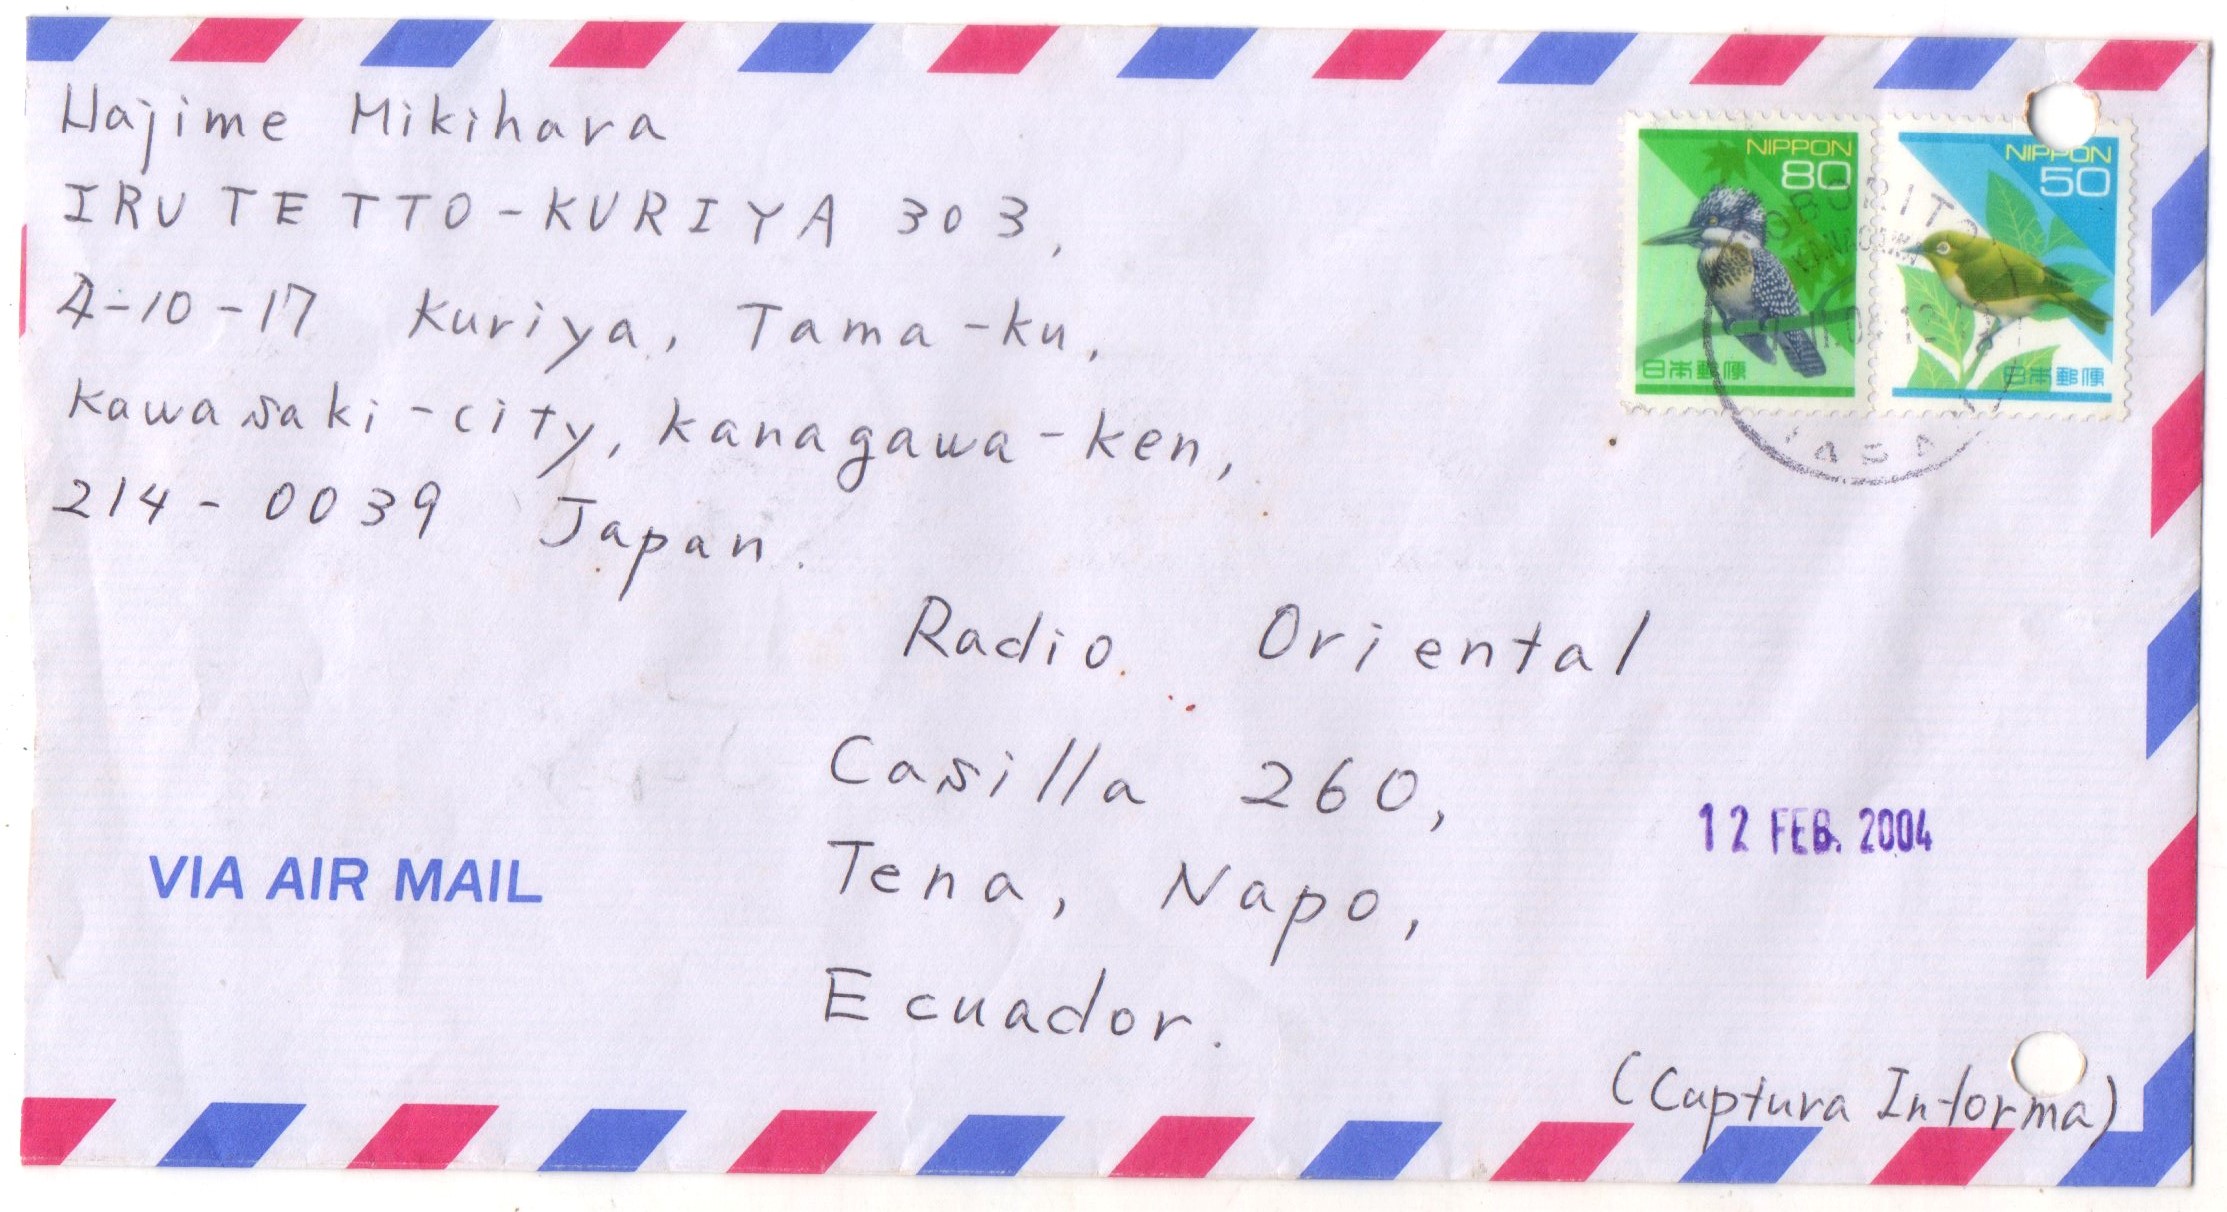 Hajime Mikihara
IRUTETTO-KURIYA 303,
4-10-17 Kuriya, Tama-ku,
Kawasaki-city, Kanagawa-ken,
214-0039 Japan.
NIPPON
80
日本郵便
NIPPON
50
日本郵便
Radio Oriental
Casilla 260,
Tena, Napo,
Ecuador.
12 FEB. 2004
VIA AIR MAIL
(Captura Informa)